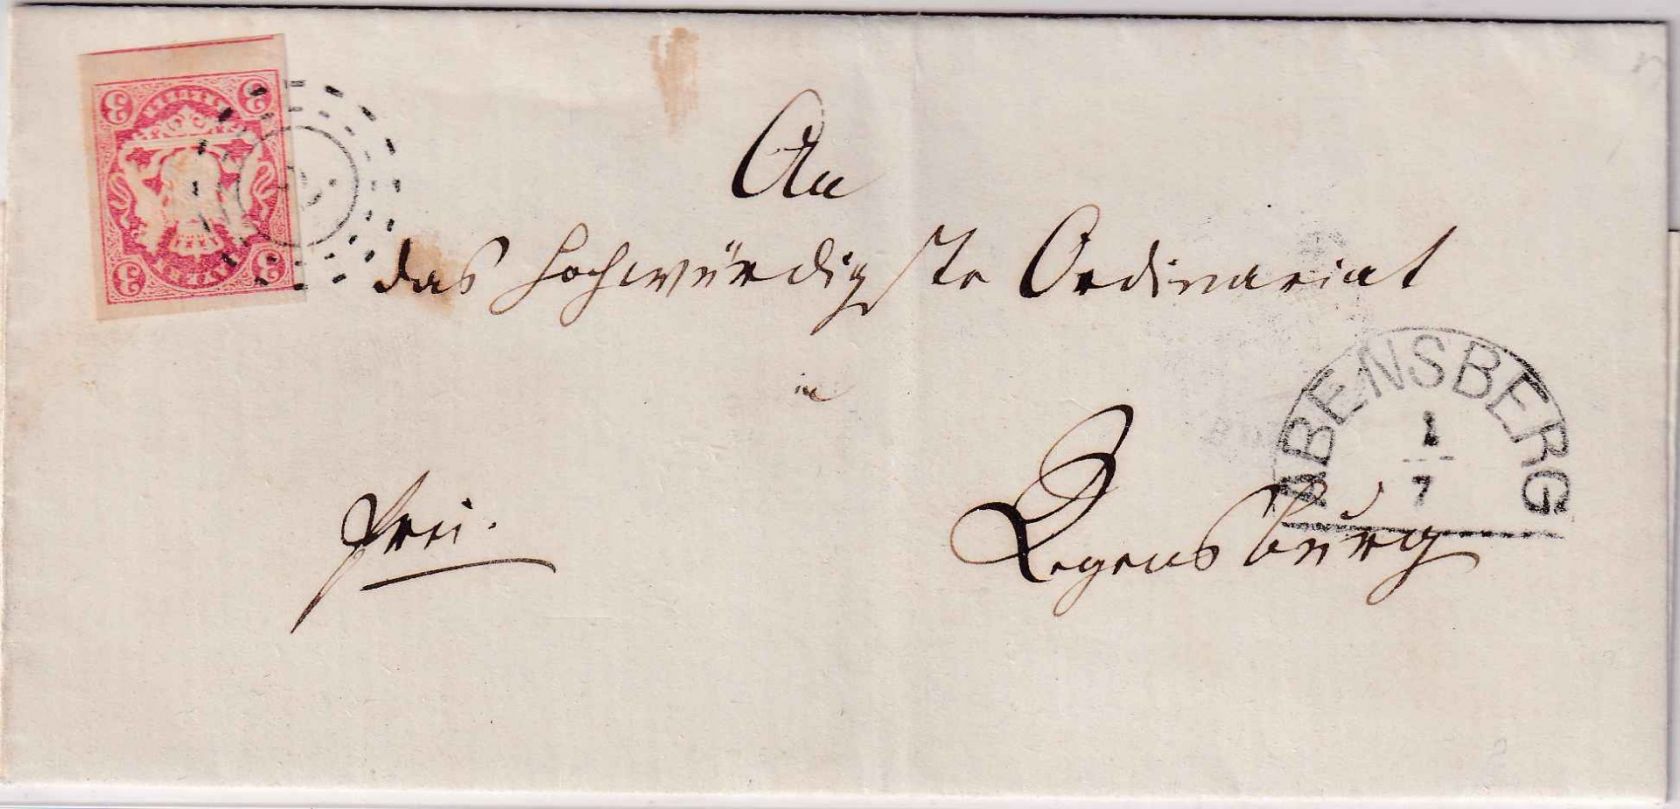 An
das hochwürdigste Ordinariat
in
Regensburg
frei.
ABENSBERG
1
7
3 3
3 3